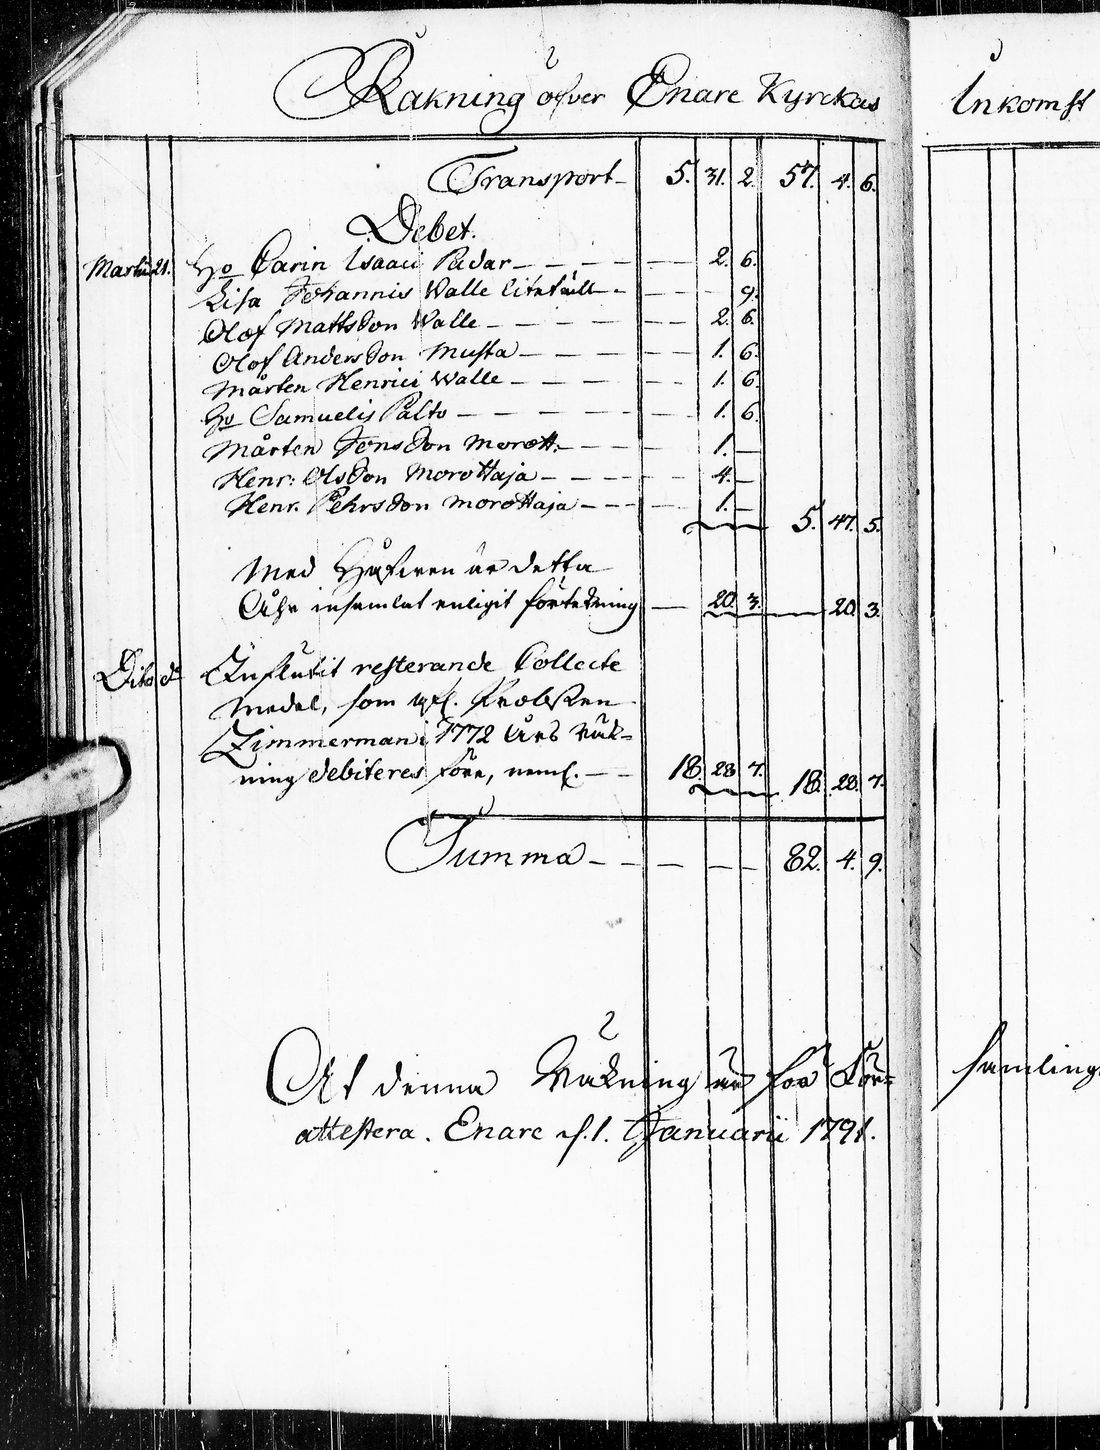 Räkning öfver Enare Kyrckas
Transport 5. 31. 2. 57. 4. 6.
Debet.
Martii 21. Ho Carin Isaaci Padar 2. 6.
Lisa Johannis Walle 9.
Olof Mattsson Walle 2. 6.
Olof Andersson Musta 1. 6.
Mårten Henrici Walle 1. 6.
Ho Samuelis Palto 1. 6.
Mårten Jonsson Morott: 1. —
Henr: Olsson Morottaja 4. —
Henr. Pehrsson Morottaja 1. — 5. 47. 5.
Med Håfven är detta
Åhr insamlat enligit förtekning 20. 3. 20. 3.
Dito do Influtit resterande Collecte
Medel, som Probsten
Zimmerman i 1772 Års Räk-
ning debiteres före, neml. 18. 28. 7. 18. 28. 7.
Summa 82. 4. 9.
At denna Räkning är för För-
attestera. Enare d. 1. Januarii 1791.
Inkomst
samlings